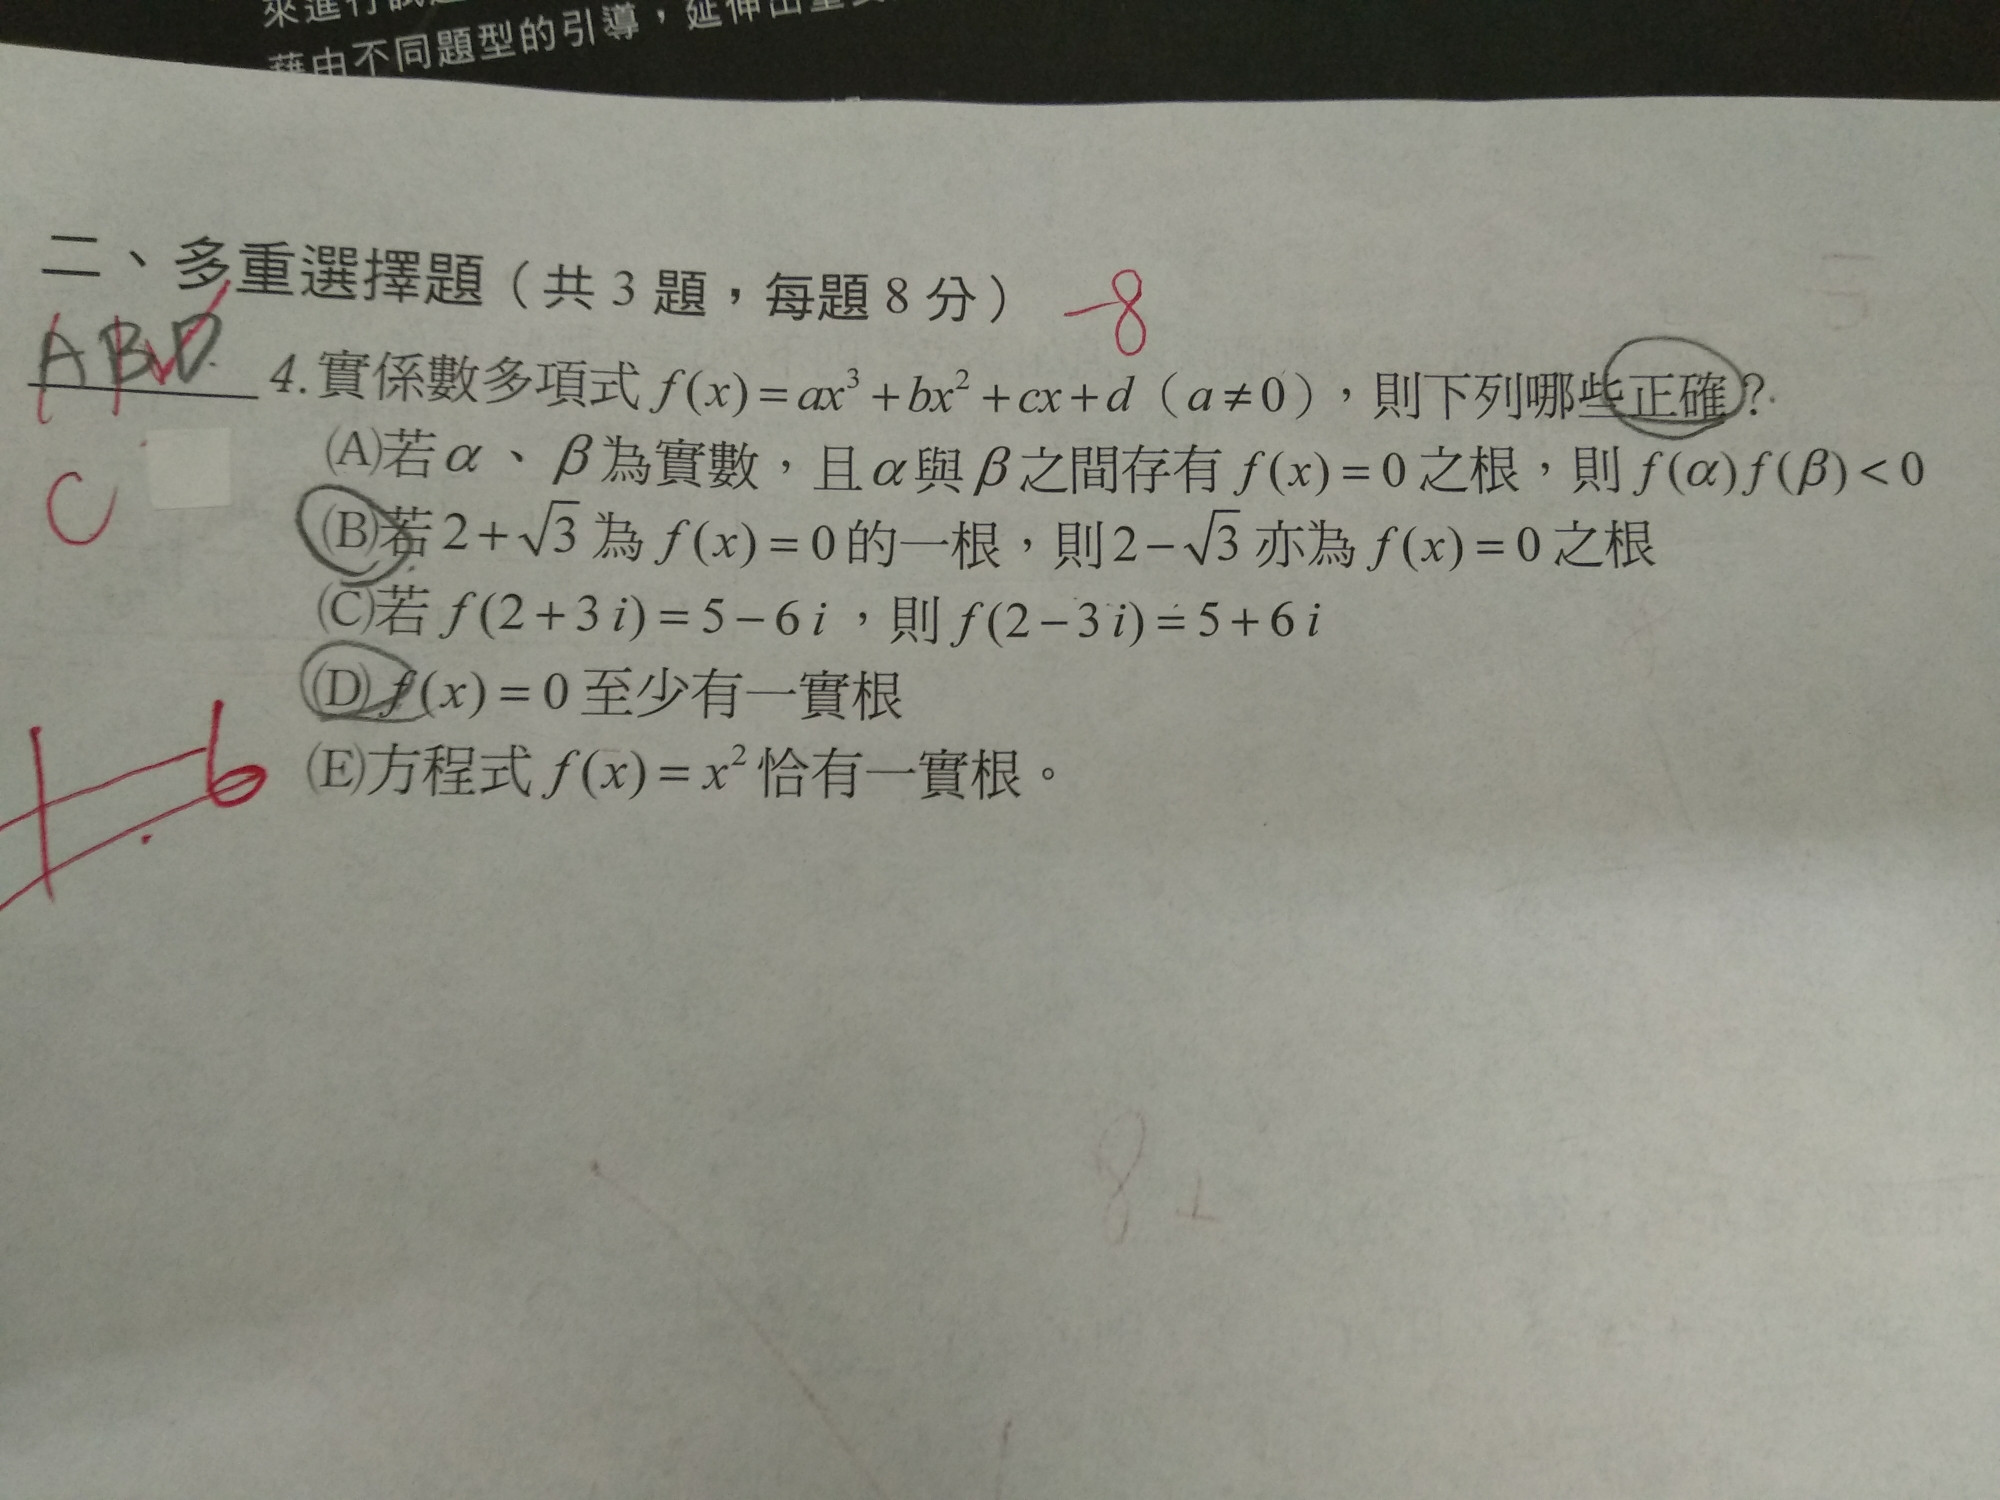 藉由不同題型的引導，延伸出
二、多重選擇題（共 3 題，每題 8 分） -8
ABD 4. 實係數多項式 f(x)=ax³+bx²+cx+d（a≠0），則下列哪些正確？
(A)若α、β為實數，且α與β之間存有 f(x)=0 之根，則 f(α)f(β)<0
C
(B)若 2+√3 為 f(x)=0 的一根，則 2−√3 亦為 f(x)=0 之根
(C)若 f(2+3i)=5−6i，則 f(2−3i)=5+6i
(D) f(x)=0 至少有一實根
(E)方程式 f(x)=x² 恰有一實根。